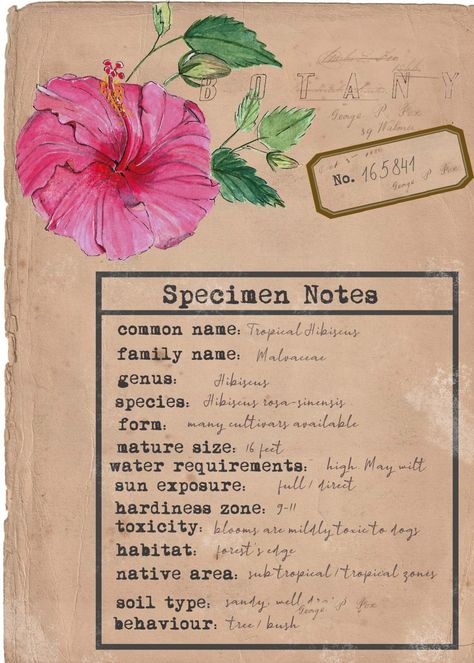 BOTANY
George P Fox
No. 165841
George P Fox
Specimen Notes
common name: Tropical Hibiscus
family name: Malvaceae
genus: Hibiscus
species: Hibiscus rosa-sinensis
form: many cultivars available
mature size: 16 feet
water requirements: high. May wilt
sun exposure: full / direct
hardiness zone: 9-11
toxicity: blooms are mildly toxic to dogs
habitat: forest's edge
native area: sub tropical / tropical zones
soil type: sandy, well
George P Fox
behaviour: tree / bush